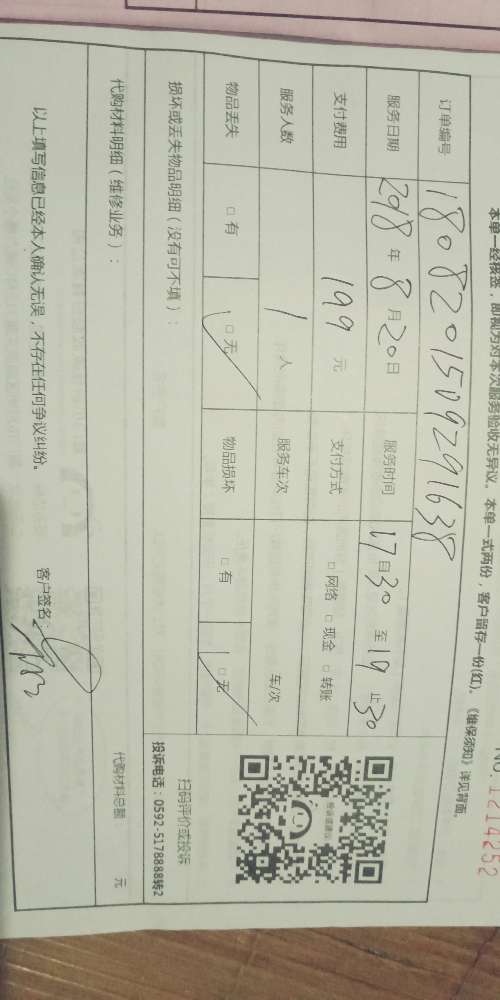 NO.1214252
本单一经核签，即视为对本次服务验收无异议。本单一式两份，客户留存一份(红)。《维保须知》详见背面。
订单编号 1808201509291638
服务日期 2018 年 8 月 20 日 服务时间 17 日 30 至 19 止 30
支付费用 199 元 支付方式 □ 网络 □ 现金 □ 转账
服务人数 1 人 服务车次 车/次
物品丢失 □ 有 □ 无 物品损坏 □ 有 □ 无
损坏或丢失物品明细（没有可不填）：
扫码评价或投诉
投诉电话：0592-5178888转2
代购材料明细（维修业务）： 代购材料总额 元
以上填写信息已经本人确认无误，不存在任何争议纠纷。 客户签名：